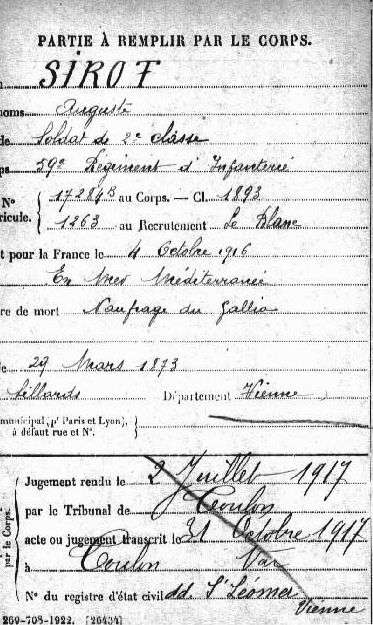 PARTIE À REMPLIR PAR LE CORPS.
SIROT
noms Auguste
de Soldat de 2e classe
ps 59e Régiment d'Infanterie
N° 17284B au Corps. — Cl. 1893
ricule. 1263 au Recrutement Le Blanc
t pour la France le 4 Octobre 1916
En Mer Méditerranée
re de mort Naufrage du Gallia
le 29 Mars 1873
Sillards Département Vienne
municipal (pr Paris et Lyon),
à défaut rue et N°.
par le Corps.
Jugement rendu le 2 Juillet 1917
par le Tribunal de Toulon
acte ou jugement transcrit le 31 Octobre 1917
à Toulon Var
N° du registre d'état civil dd. St Léomer
Vienne
269-708-1922. [26434]